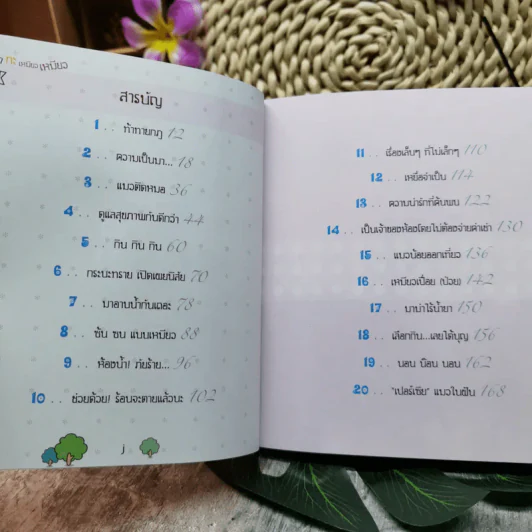 กะ เหมียว เหมียว
สารบัญ
1 . . ท้าทายกฎ 12
2 . . ความเป็นมา... 18
3 . . แมวติดหมอ 36
4 . . ดูแลสุขภาพกันดีกว่า 44
5 . . กิน กิน กิน 60
6 . . กระบะทราย เปิดเผยนิสัย 70
7 . . มาอาบน้ำกันเถอะ 78
8 . . ซัน ซน แบบเหมียว 88
9 . . ห้องน้ำ! ภัยร้าย... 96
10 . . ช่วยด้วย! ร้อนจะตายแล้วนะ 102
11 . . เรื่องเล็บๆ ที่ไม่เล็กๆ 110
12 . . เหยื่อจำเป็น 114
13 . . ความน่ารักที่ค้นพบ 122
14 . . เป็นเจ้าของห้องโดยไม่ต้องจ่ายค่าเช่า 130
15 . . แมวน้อยออกเที่ยว 136
16 . . เหมียวเปื่อย (ป่วย) 142
17 . . มาม่าไร้น้ำยา 150
18 . . เลือกกิน...เลยได้บุญ 156
19 . . นอน น๊อน นอน 162
20 . . "เปอร์เซีย" แมวในฝัน 168